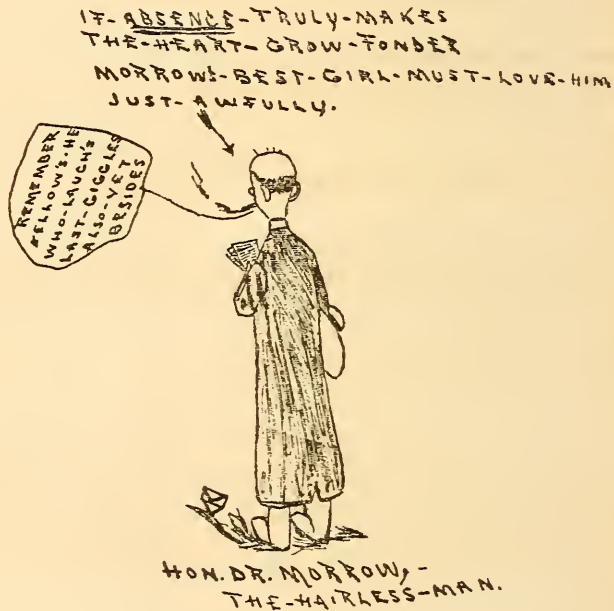 IF-ABSENCE-TRULY-MAKES
THE-HEART-GROW-FONDER
MORROW'S-BEST-GIRL-MUST-LOVE-HIM
JUST-AWFULLY.
REMEMBER
FELLOW'S-HE
WHO-LAUGH'S
LAST-GIGGLES
ALSO-YET
BESIDES
HON. DR. MORROW,-
THE-HAIRLESS-MAN.